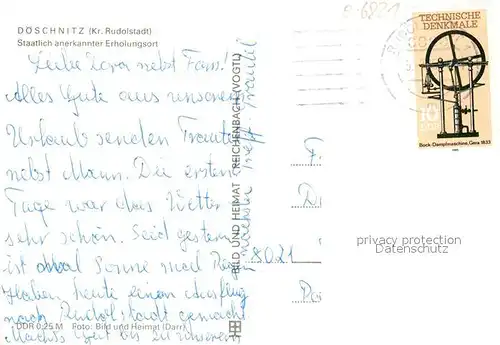 8-6921
DÖSCHNITZ (Kr. Rudolstadt)
Staatlich anerkannter Erholungsort
Liebe Lora nebst Fam.
Alles Gute aus unserem
Urlaub senden Traute
nebst Mann. Die ersten
Tage war das Wetter
sehr schön. Seid gestern
ist mal Sonne mal Regen
Haben heute einen Ausflug
nach Rudolstadt gemacht
Machts gut bis zu unserem
nächsten Treff Traudel
DDR 0,25 M Foto: Bild und Heimat (Darr)
BILD UND HEIMAT REICHENBACH (VOGTL)
TECHNISCHE
DENKMALE
10
DDR
Bock-Dampfmaschine, Gera 1833
F
D
8021
Da
privacy protection
Datenschutz